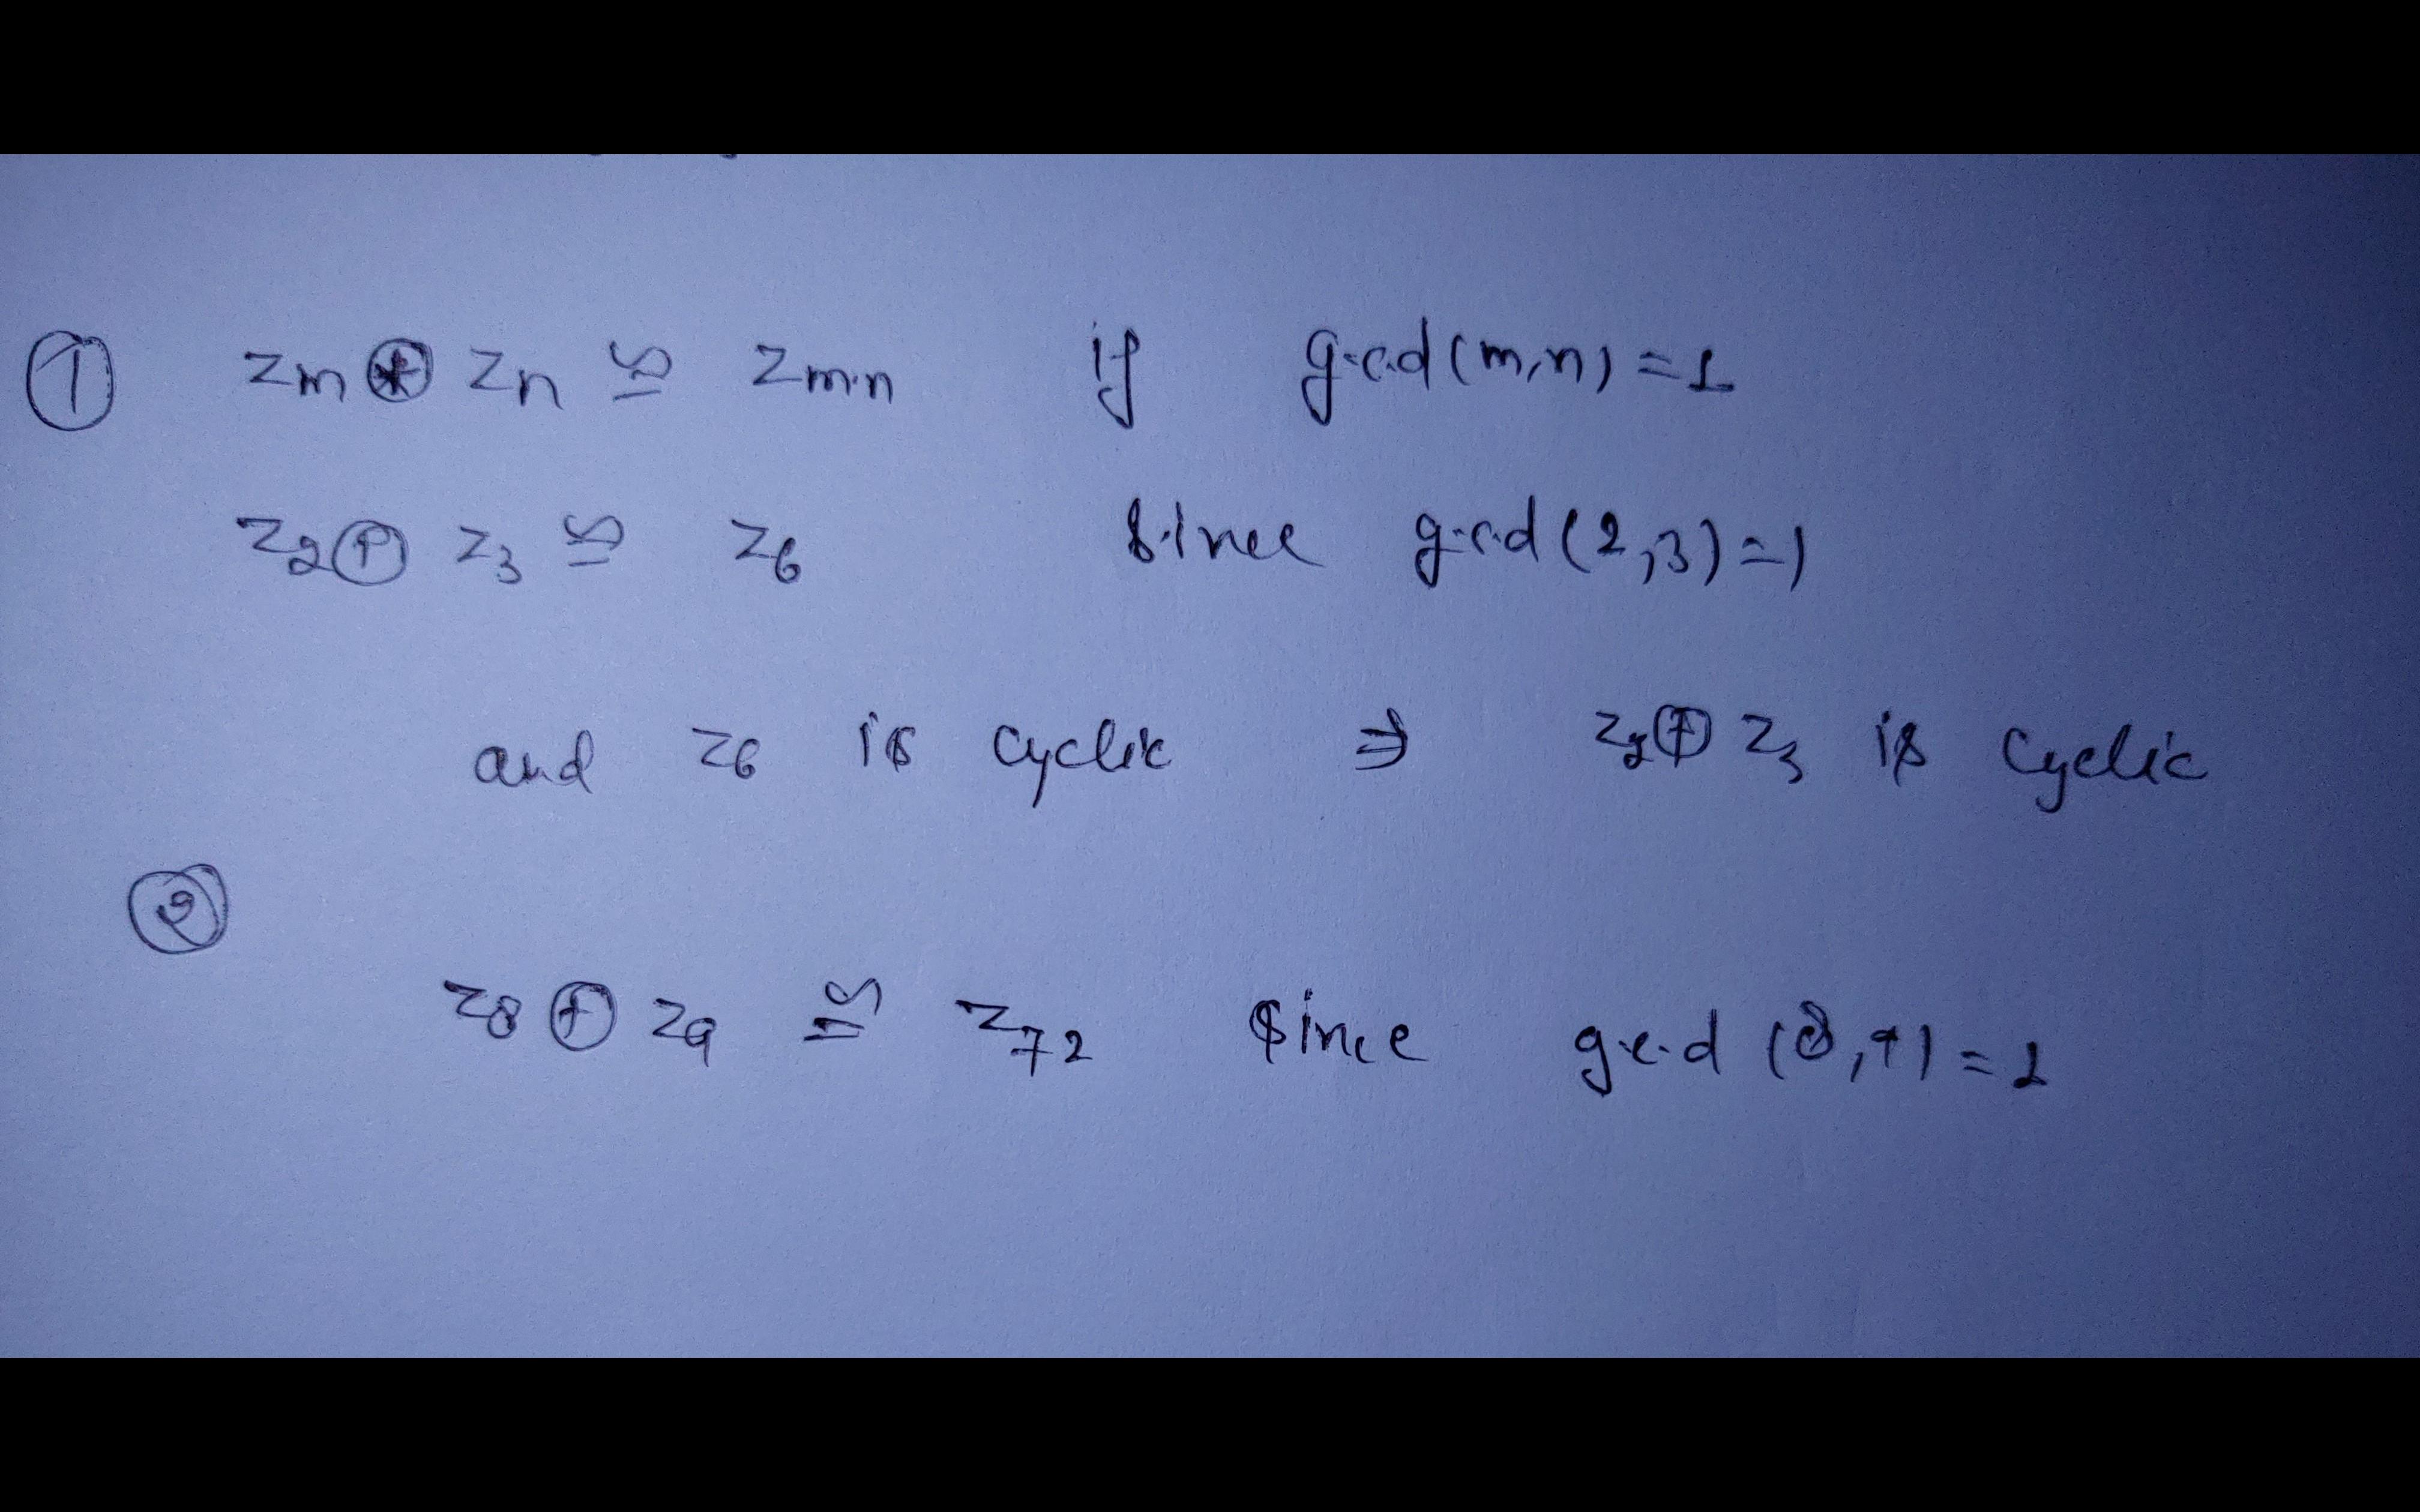 ① Zm ⊕ Zn ≅ Zm·n if g.c.d(m,n) = 1
Z2 ⊕ Z3 ≅ Z6 Since g.c.d(2,3) = 1
and Z6 is cyclic ⇒ Z2 ⊕ Z3 is cyclic
②
Z8 ⊕ Z9 ≅ Z72 Since g.c.d (8,9) = 1